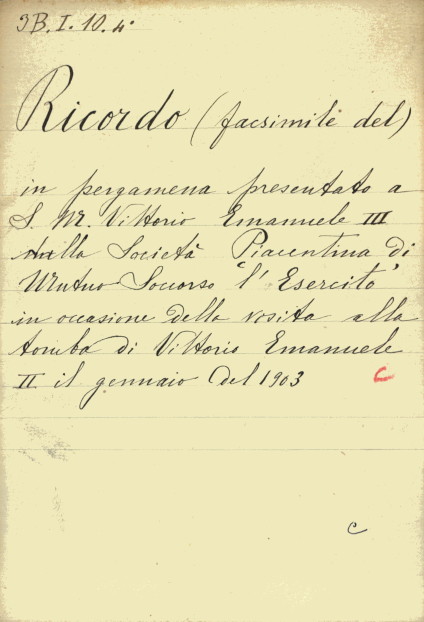 3B.I.10.4°
Ricordo (facsimile del)
in pergamena presentato a
S. M. Vittorio Emanuele III
dalla Società Piacentina di
Mutuo Soccorso "l'Esercito"
in occasione della visita alla
tomba di Vittorio Emanuele
II il gennaio del 1903
C
c